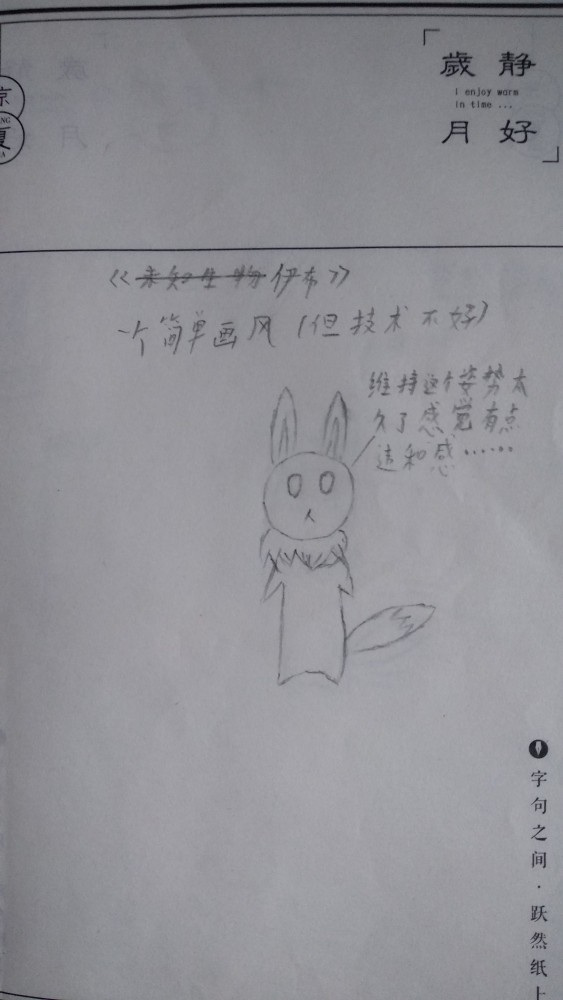 歲 静
i enjoy warm
in time ...
月 好
京
夏
《未知生物伊布》
一个简单画风（但技术不好）
维持这个姿势太
久了感觉有点
违和感……
字句之间·跃然纸上